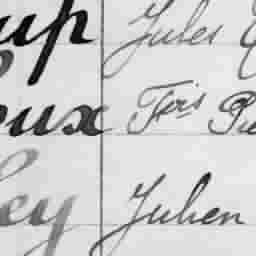 up Jules
oux Frs Pie
ley Julien